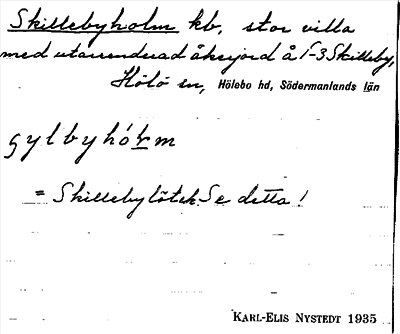 Skillebyholm kb, stor villa
med utarrenderad åkerjord å 1-3 Skilleby,
Hölö sn, Hölebo hd, Södermanlands län
ʃylbyhólm
= Skilleby lötek. Se detta!
KARL-ELIS NYSTEDT 1935